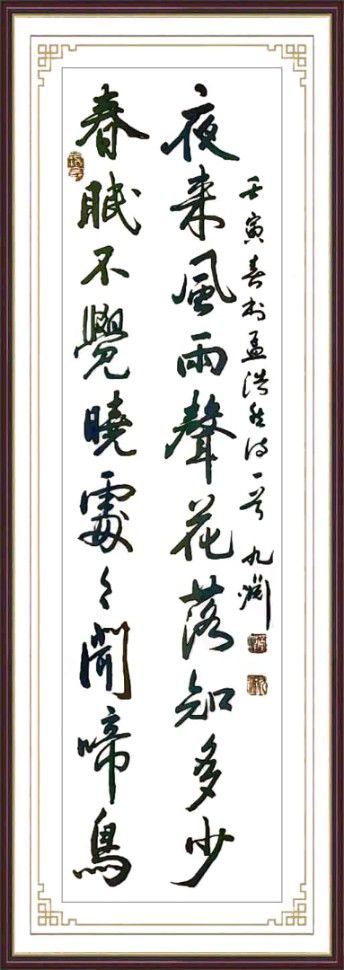 春眠不覺曉處々聞啼鳥
夜来風雨聲花落知多少
壬寅春抄孟浩然诗一首 九渊